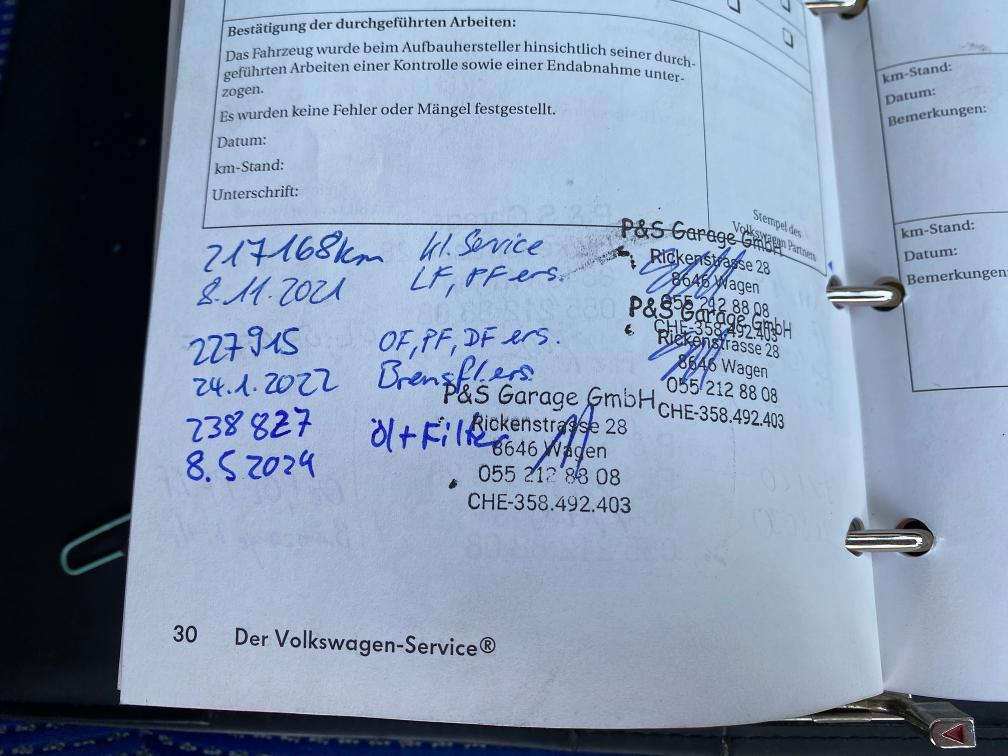 Bestätigung der durchgeführten Arbeiten:
Das Fahrzeug wurde beim Aufbauhersteller hinsichtlich seiner durch-
geführten Arbeiten einer Kontrolle sowie einer Endabnahme unter-
zogen.
Es wurden keine Fehler oder Mängel festgestellt.
Datum:
km-Stand:
Unterschrift:
Stempel des
Volkswagen Partners
217168km kl. Service
8.11.2021 LF, PF ers.
P&S Garage GmbH
Rickenstrasse 28
8646 Wagen
055 212 88 08
CHE-358.492.403
227915 OF, PF, DF ers.
24.1.2022 Bremsfl. ers.
P&S Garage GmbH
Rickenstrasse 28
8646 Wagen
055 212 88 08
CHE-358.492.403
238827 öl+Filter
8.5 2024
P&S Garage GmbH
Rickenstrasse 28
8646 Wagen
055 212 88 08
CHE-358.492.403
30 Der Volkswagen-Service®
km-Stand:
Datum:
Bemerkungen:
km-Stand:
Datum:
Bemerkungen: